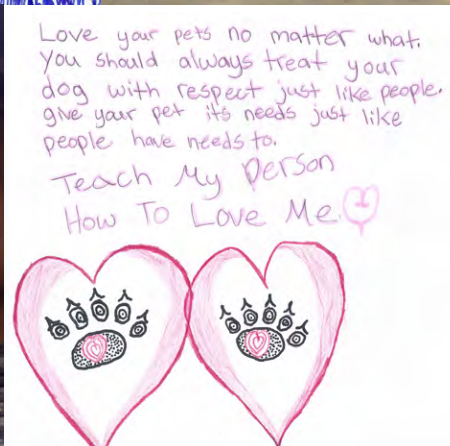 Love your pets no matter what.
You should always treat your
dog with respect just like people.
give your pet its needs just like
people have needs to.
Teach My Person
How To Love Me